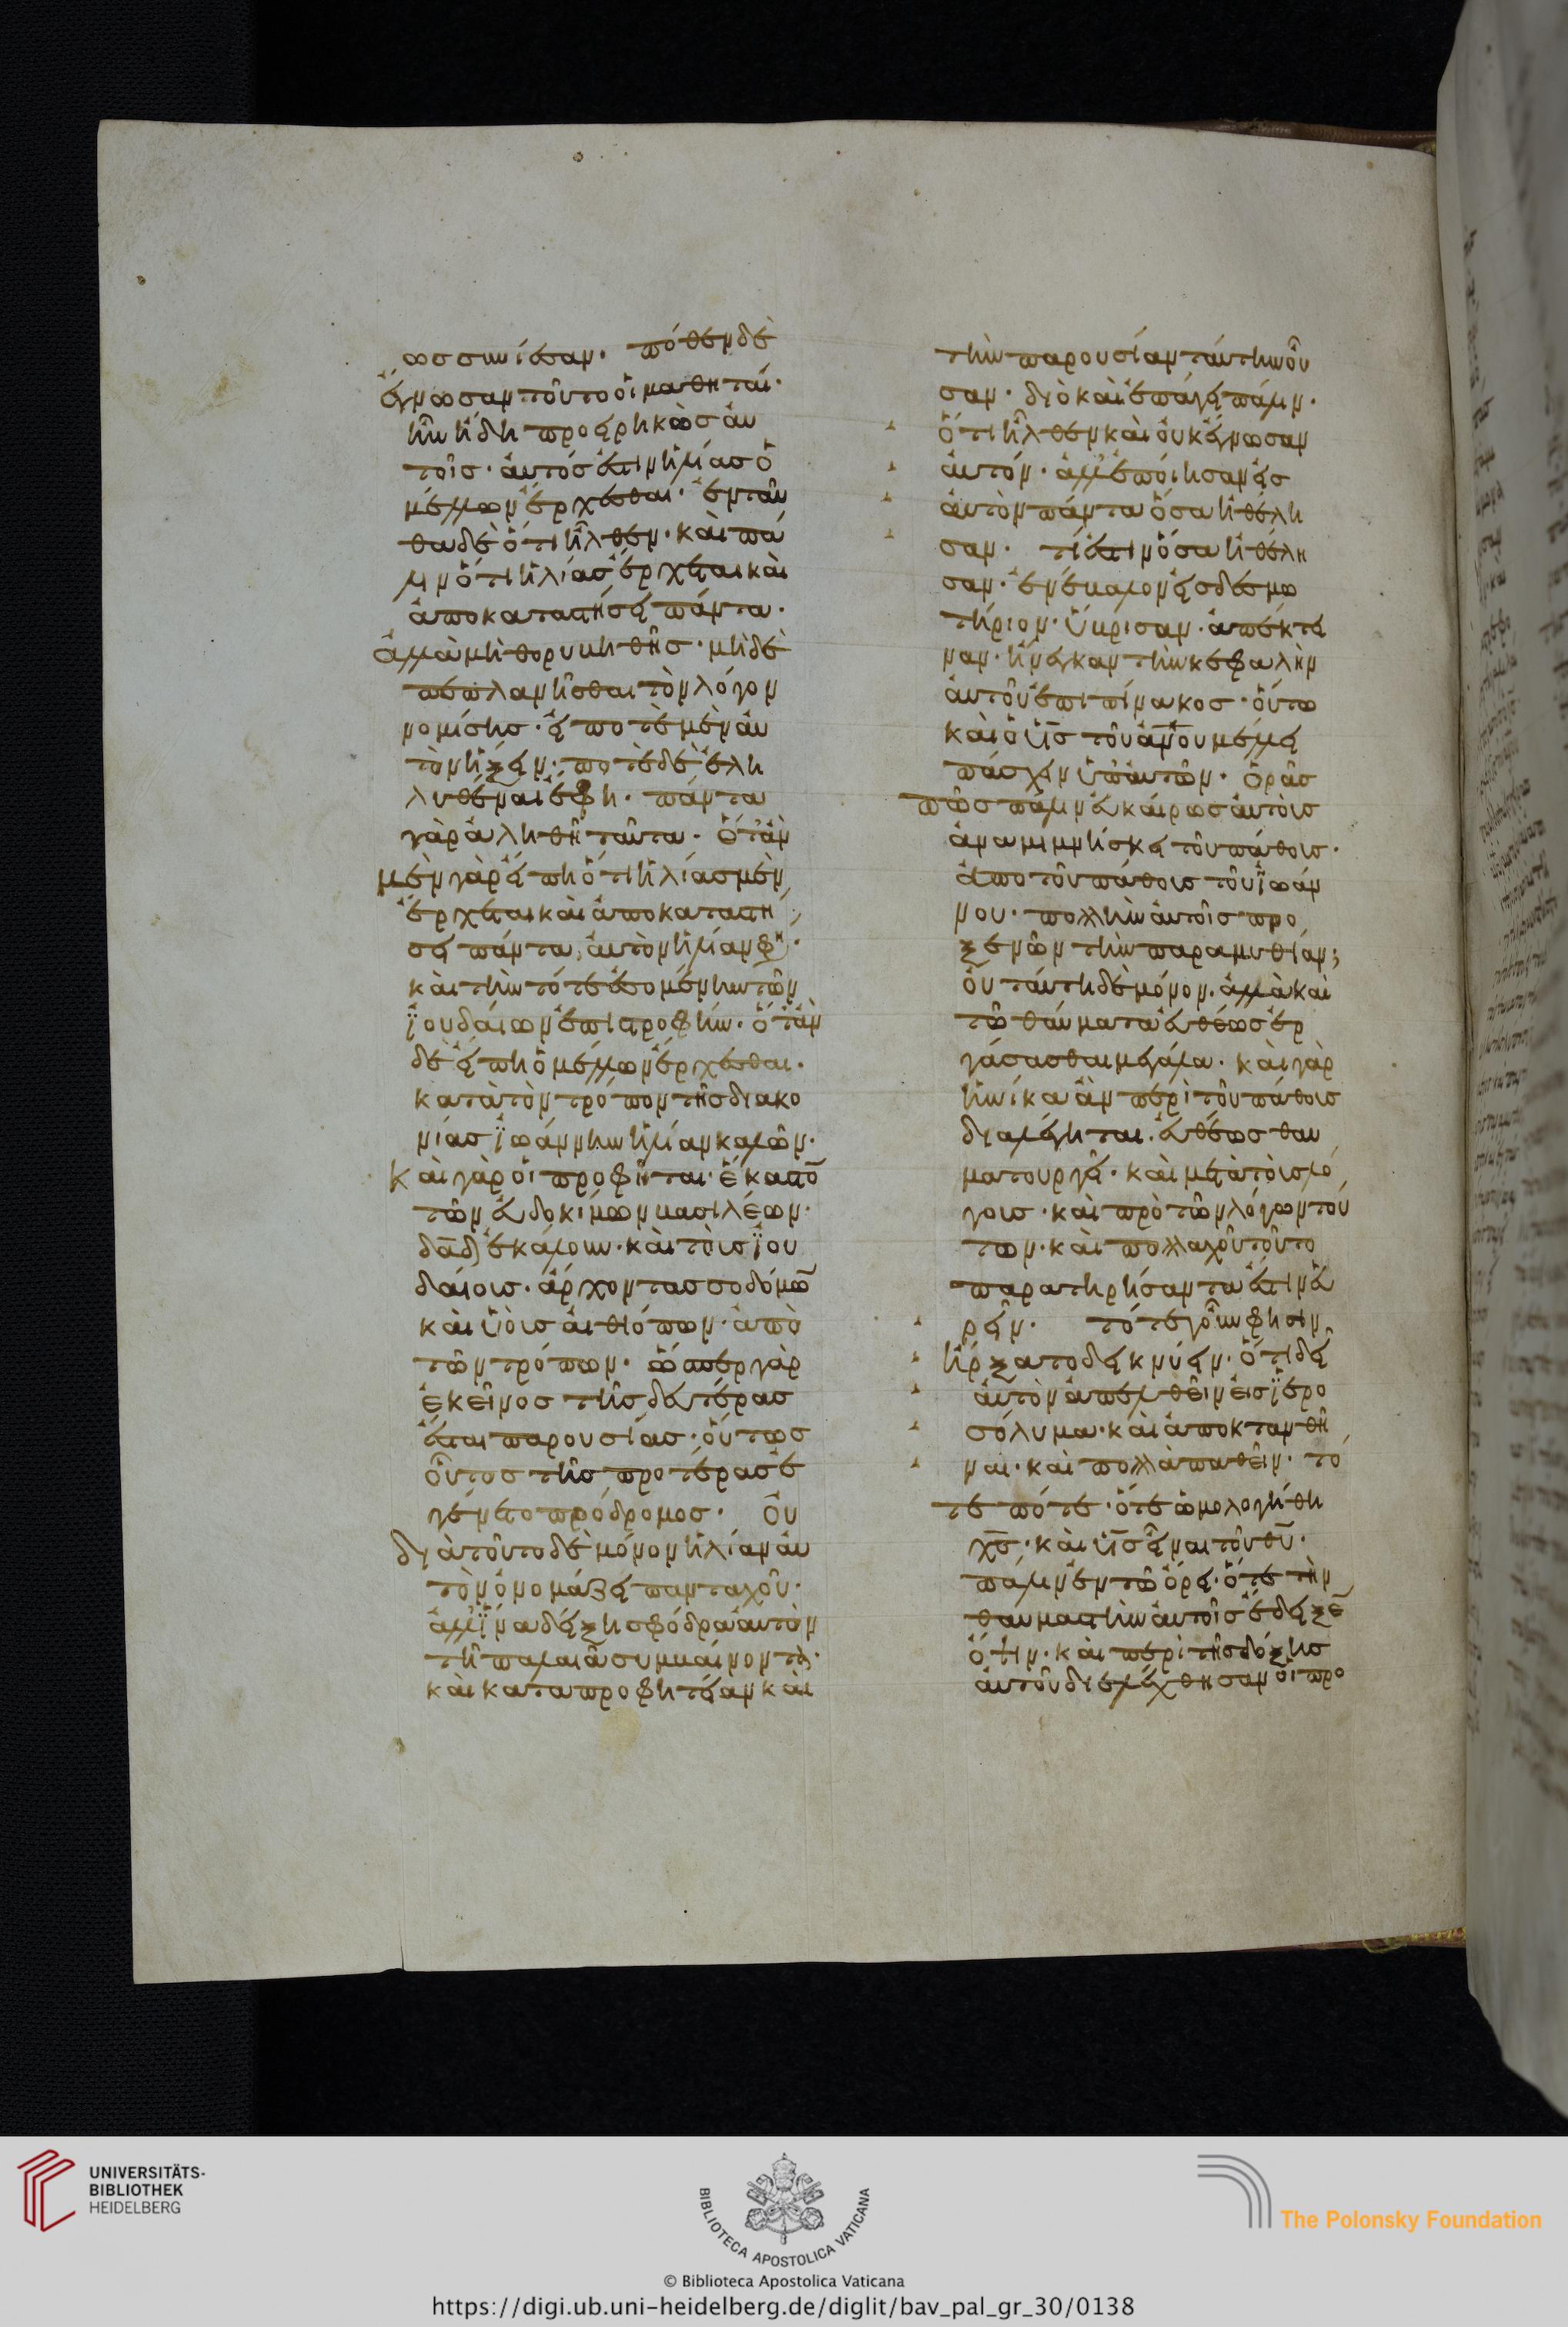 ωσ συνίεσαν· πόθεν δὲ
ἔγνωσαν τοῦτο οἱ μαθηταί·
ἦν ἤδη προειρηκὼς αὐ
τοῖς· αὐτός ἐστιν ἠλίας ὁ
μέλλων ἔρχεσθαι· ἐνταῦ
θα δὲ ὅτι ἦλθεν· καὶ πά
λιν ὅτι ἠλίας ἔρχεται καὶ
ἀποκαταστήσει πάντα·
ἀλλὰ μὴ θορυβηθῆς· μηδὲ
πεπλανῆσθαι τὸν λόγον
νομίσης· εἴ ποτὲ μὲν αὐ
τὸν ἥξειν· ποτὲ δὲ ἐλη
λυθέναι ἔφη· πάντα
γὰρ ἀληθῆ ταῦτα· ὅταν
μὲν γὰρ εἴπη ὅτι ἠλίας μὲν
ἔρχεται καὶ ἀποκαταστή
σει πάντα, αὐτὸν ἠλίαν φη·
καὶ τὴν τότε ἐσομένην τῶν
ϊουδαίων ἐπιστροφήν· ὅταν
δὲ εἴπη ὁ μέλλων ἔρχεσθαι·
κατὰ τὸν τρόπον τῆς διακο
νίας ϊωάννην ἠλίαν καλῶν·
καὶ γὰρ οἱ προφῆται· ἕκαστο̅
τῶν εὐδοκίμων βασιλέων·
δα̅δ ἐκάλουν· καὶ τοὺς ϊου
δαίους· ἄρχοντας σοδόμω̅
καὶ υἱοὺς αἰθιόπων· ἀπὸ
τῶν τρόπων· ὥσπερ γὰρ
ἐκεῖνος τῆς δευτέρας
ἔσται παρουσίας· οὕτως
οὗτος τῆς προτέρας ἐ
γένετο πρόδρομος· οὐ
διὰ τοῦτο δὲ μόνον ἠλίαν αὐ
τὸν ὀνομάζει πανταχοῦ·
ἀλλ' ϊνα δείξη σφόδρα αὐτὸν
τῆ παλαιᾶ συμβαίνοντα·
καὶ κατὰ προφητείαν καὶ
τὴν παρουσίαν ταύτην οὖ
σαν· διὸ καὶ ἐπάγει πάλιν·
ὅτι ἦλθεν καὶ οὐκ ἔγνωσαν
αὐτόν· ἀλλ' ἐποίησαν εἰς
αὐτὸν πάντα ὅσα ἠθέλη
σαν· τί ἐστιν ὅσα ἠθέλη
σαν· ἐνέβαλον εἰς δεσμω
τήριον· ὕβρισαν· ἀπέκτει
ναν· ἤνεγκαν τὴν κεφαλὴν
αὐτοῦ ἐπὶ πίνακος· οὕτω
καὶ ὁ υι̅σ τοῦ ἀν̅ου μέλλει
πάσχειν ὑπ' αὐτῶν· ὁρᾶς
πῶς πάλιν εὐκαίρως αὐτοὺς
ἀναμιμνήσκει τοῦ πάθους·
ἀπὸ τοῦ πάθους τοῦ ϊωάν
νου· πολλὴν αὐτοῖς προ
ξενῶν τὴν παραμυθίαν;
οὐ ταύτη δὲ μόνον· ἀλλὰ καὶ
τῶ θαύματα εὐθέως ἐρ
γάσασθαι μεγάλα· καὶ γὰρ
ἡνίκα ἂν περὶ τοῦ πάθους
διαλέγηται· εὐθέως θαυ
ματουργεῖ· καὶ μετὰ τοὺς λό
γους· καὶ πρὸ τῶν λόγων τού
των· καὶ πολλαχοῦ τοῦτο
παρατηρήσαντα ἔστιν εὑ
ρεῖν· τότε γοῦν φησὶν
ἤρξατο δεικνύειν· ὅτι δεῖ
αὐτὸν ἀπελθεῖν εἰς ϊερο
σόλυμα· καὶ ἀποκτανθῆ
ναι· καὶ πολλὰ παθεῖν· τό
τε πότε· ὅτε ὡμολογήθη
χ̅σ· καὶ υι̅σ εἶναι τοῦ θυ̅·
πάλιν ἐν τῶ ὄρει· ὅτε τὴν
θαυμαστὴν αὐτοῖς ἔδειξε̅
ὄψιν· καὶ περὶ τῆς δόξης
αὐτοῦ διελέχθησαν οἱ προ
UNIVERSITÄTS-
BIBLIOTHEK
HEIDELBERG
BIBLIOTECA APOSTOLICA VATICANA
The Polonsky Foundation
© Biblioteca Apostolica Vaticana
https://digi.ub.uni-heidelberg.de/diglit/bav_pal_gr_30/0138